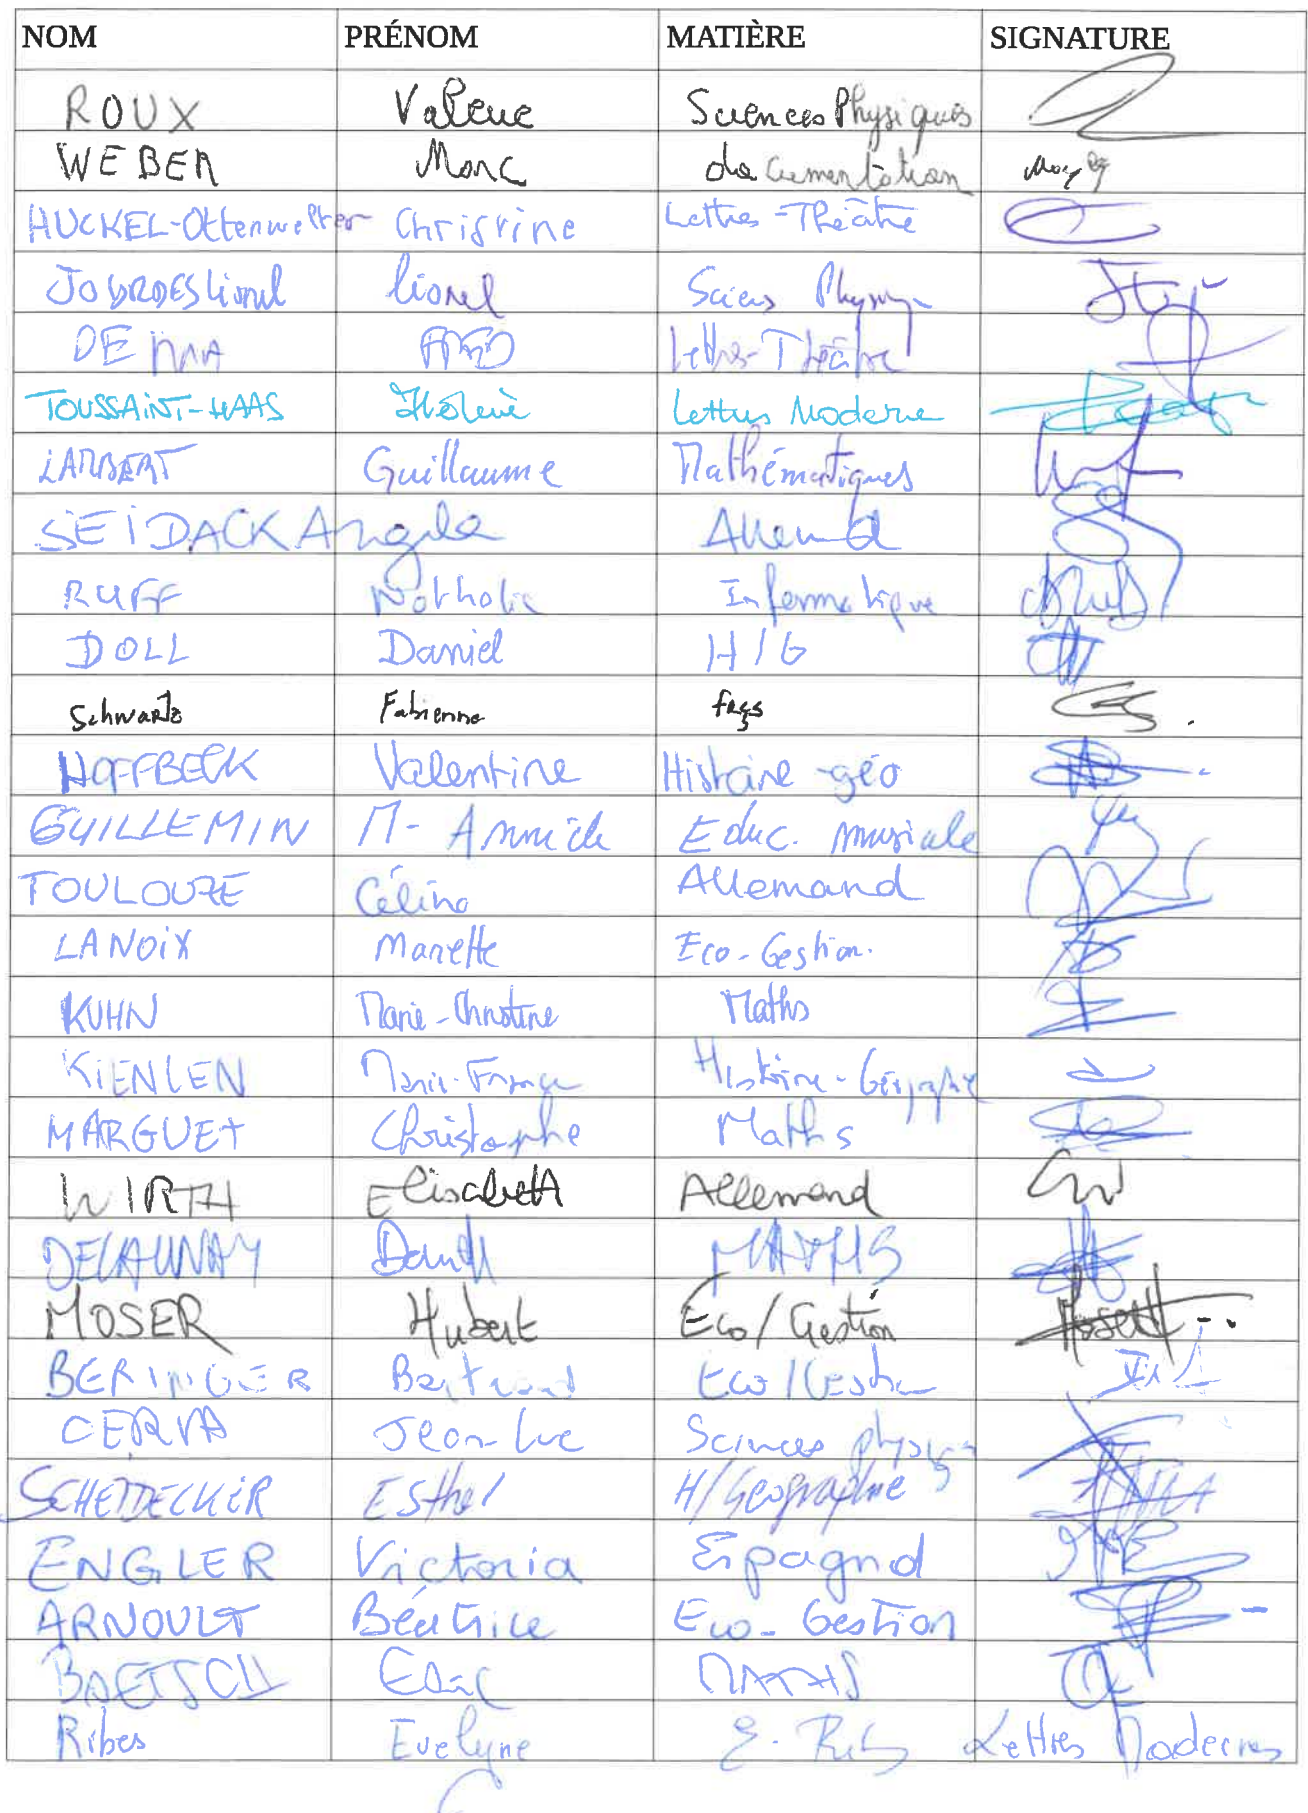 NOM PRÉNOM MATIÈRE SIGNATURE
ROUX Sciences Physiques
WEBER Marc documentation
HUCKEL-Ottenwelter Christine Lettres-Théâtre
Lionel Lionel
DE Lettres-Théâtre
TOUSSAINT-HAAS Hélène Lettres Moderne
LAMBERT Guillaume Mathématiques
SEIDACK Angela Allemand
RUFF Nathalie Informatique
DOLL Daniel H/G
Schwartz Fabienne frçs
HOFFBECK Valentine Histoire-géo
GUILLEMIN M-Annick Educ. musicale
TOULOUZE Céline Allemand
LANOIX Mariette Eco-Gestion.
KUHN Marie-Christine Maths
KIENLEN Marie-France Histoire-Géographie
MARGUET Christophe Maths
WIRTH Elisabeth Allemand
DELAUNAY MATHS
MOSER Hubert Eco/Gestion
BERINGER Bertrand Eco/Gestion
CERVA Jean-Luc
SCHEIDECKER Esther H/Géographie
ENGLER Victoria Espagnol
ARNOULT Béatrice Eco-Gestion
BAETSCH MATHS
Ribes Evelyne E. Lettres Modernes